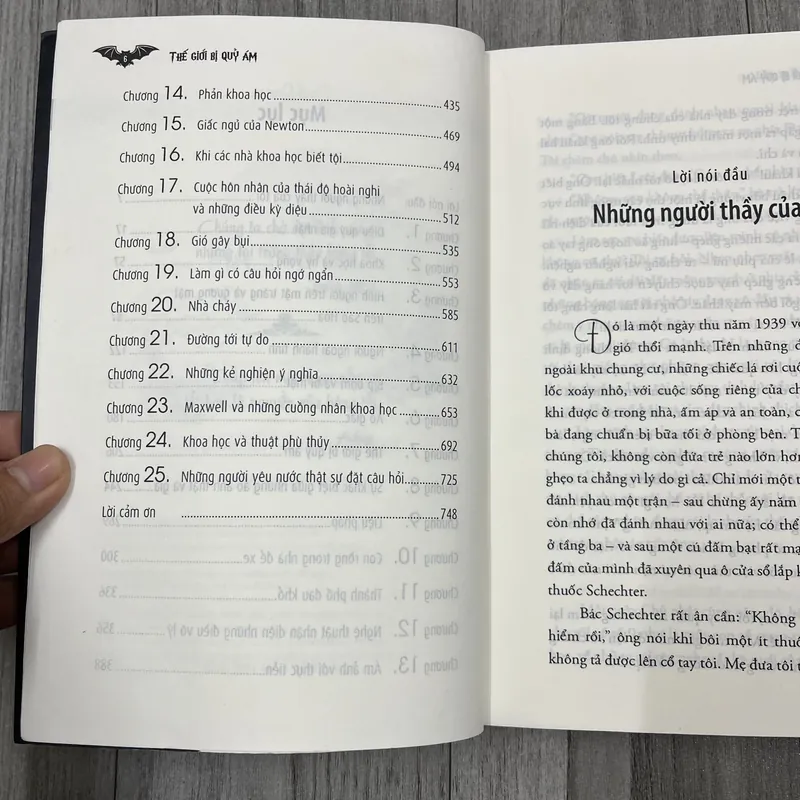 6
THẾ GIỚI BỊ QUỶ ÁM
Chương 14. Phản khoa học 435
Chương 15. Giấc ngủ của Newton 469
Chương 16. Khi các nhà khoa học biết tội 494
Chương 17. Cuộc hôn nhân của thái độ hoài nghi
và những điều kỳ diệu 512
Chương 18. Gió gây bụi 535
Chương 19. Làm gì có câu hỏi ngớ ngẩn 553
Chương 20. Nhà cháy 585
Chương 21. Đường tới tự do 611
Chương 22. Những kẻ nghiện ý nghĩa 632
Chương 23. Maxwell và những cuồng nhân khoa học 653
Chương 24. Khoa học và thuật phù thủy 692
Chương 25. Những người yêu nước thật sự đặt câu hỏi 725
Lời cảm ơn 748
Lời nói đầu
Những người thầy của
Đó là một ngày thu năm 1939 vớ
gió thổi mạnh. Trên những đ
ngoài khu chung cư, những chiếc lá rơi cuộ
lốc xoáy nhỏ, với cuộc sống riêng của ch
khi được ở trong nhà, ấm áp và an toàn, c
bà đang chuẩn bị bữa tối ở phòng bên. T
chúng tôi, không còn đứa trẻ nào lớn hơn
ghẹo ta chẳng vì lý do gì cả. Chỉ mới một t
đánh nhau một trận – sau chừng ấy năm
còn nhớ đã đánh nhau với ai nữa; có thể
ở tầng ba – và sau một cú đấm bạt rất mạ
đấm của mình đã xuyên qua ô cửa sổ lắp k
thuốc Schechter.
Bác Schechter rất ân cần: “Không
hiểm rồi,” ông nói khi bôi một ít thuố
không tả được lên cổ tay tôi. Mẹ đưa tôi t